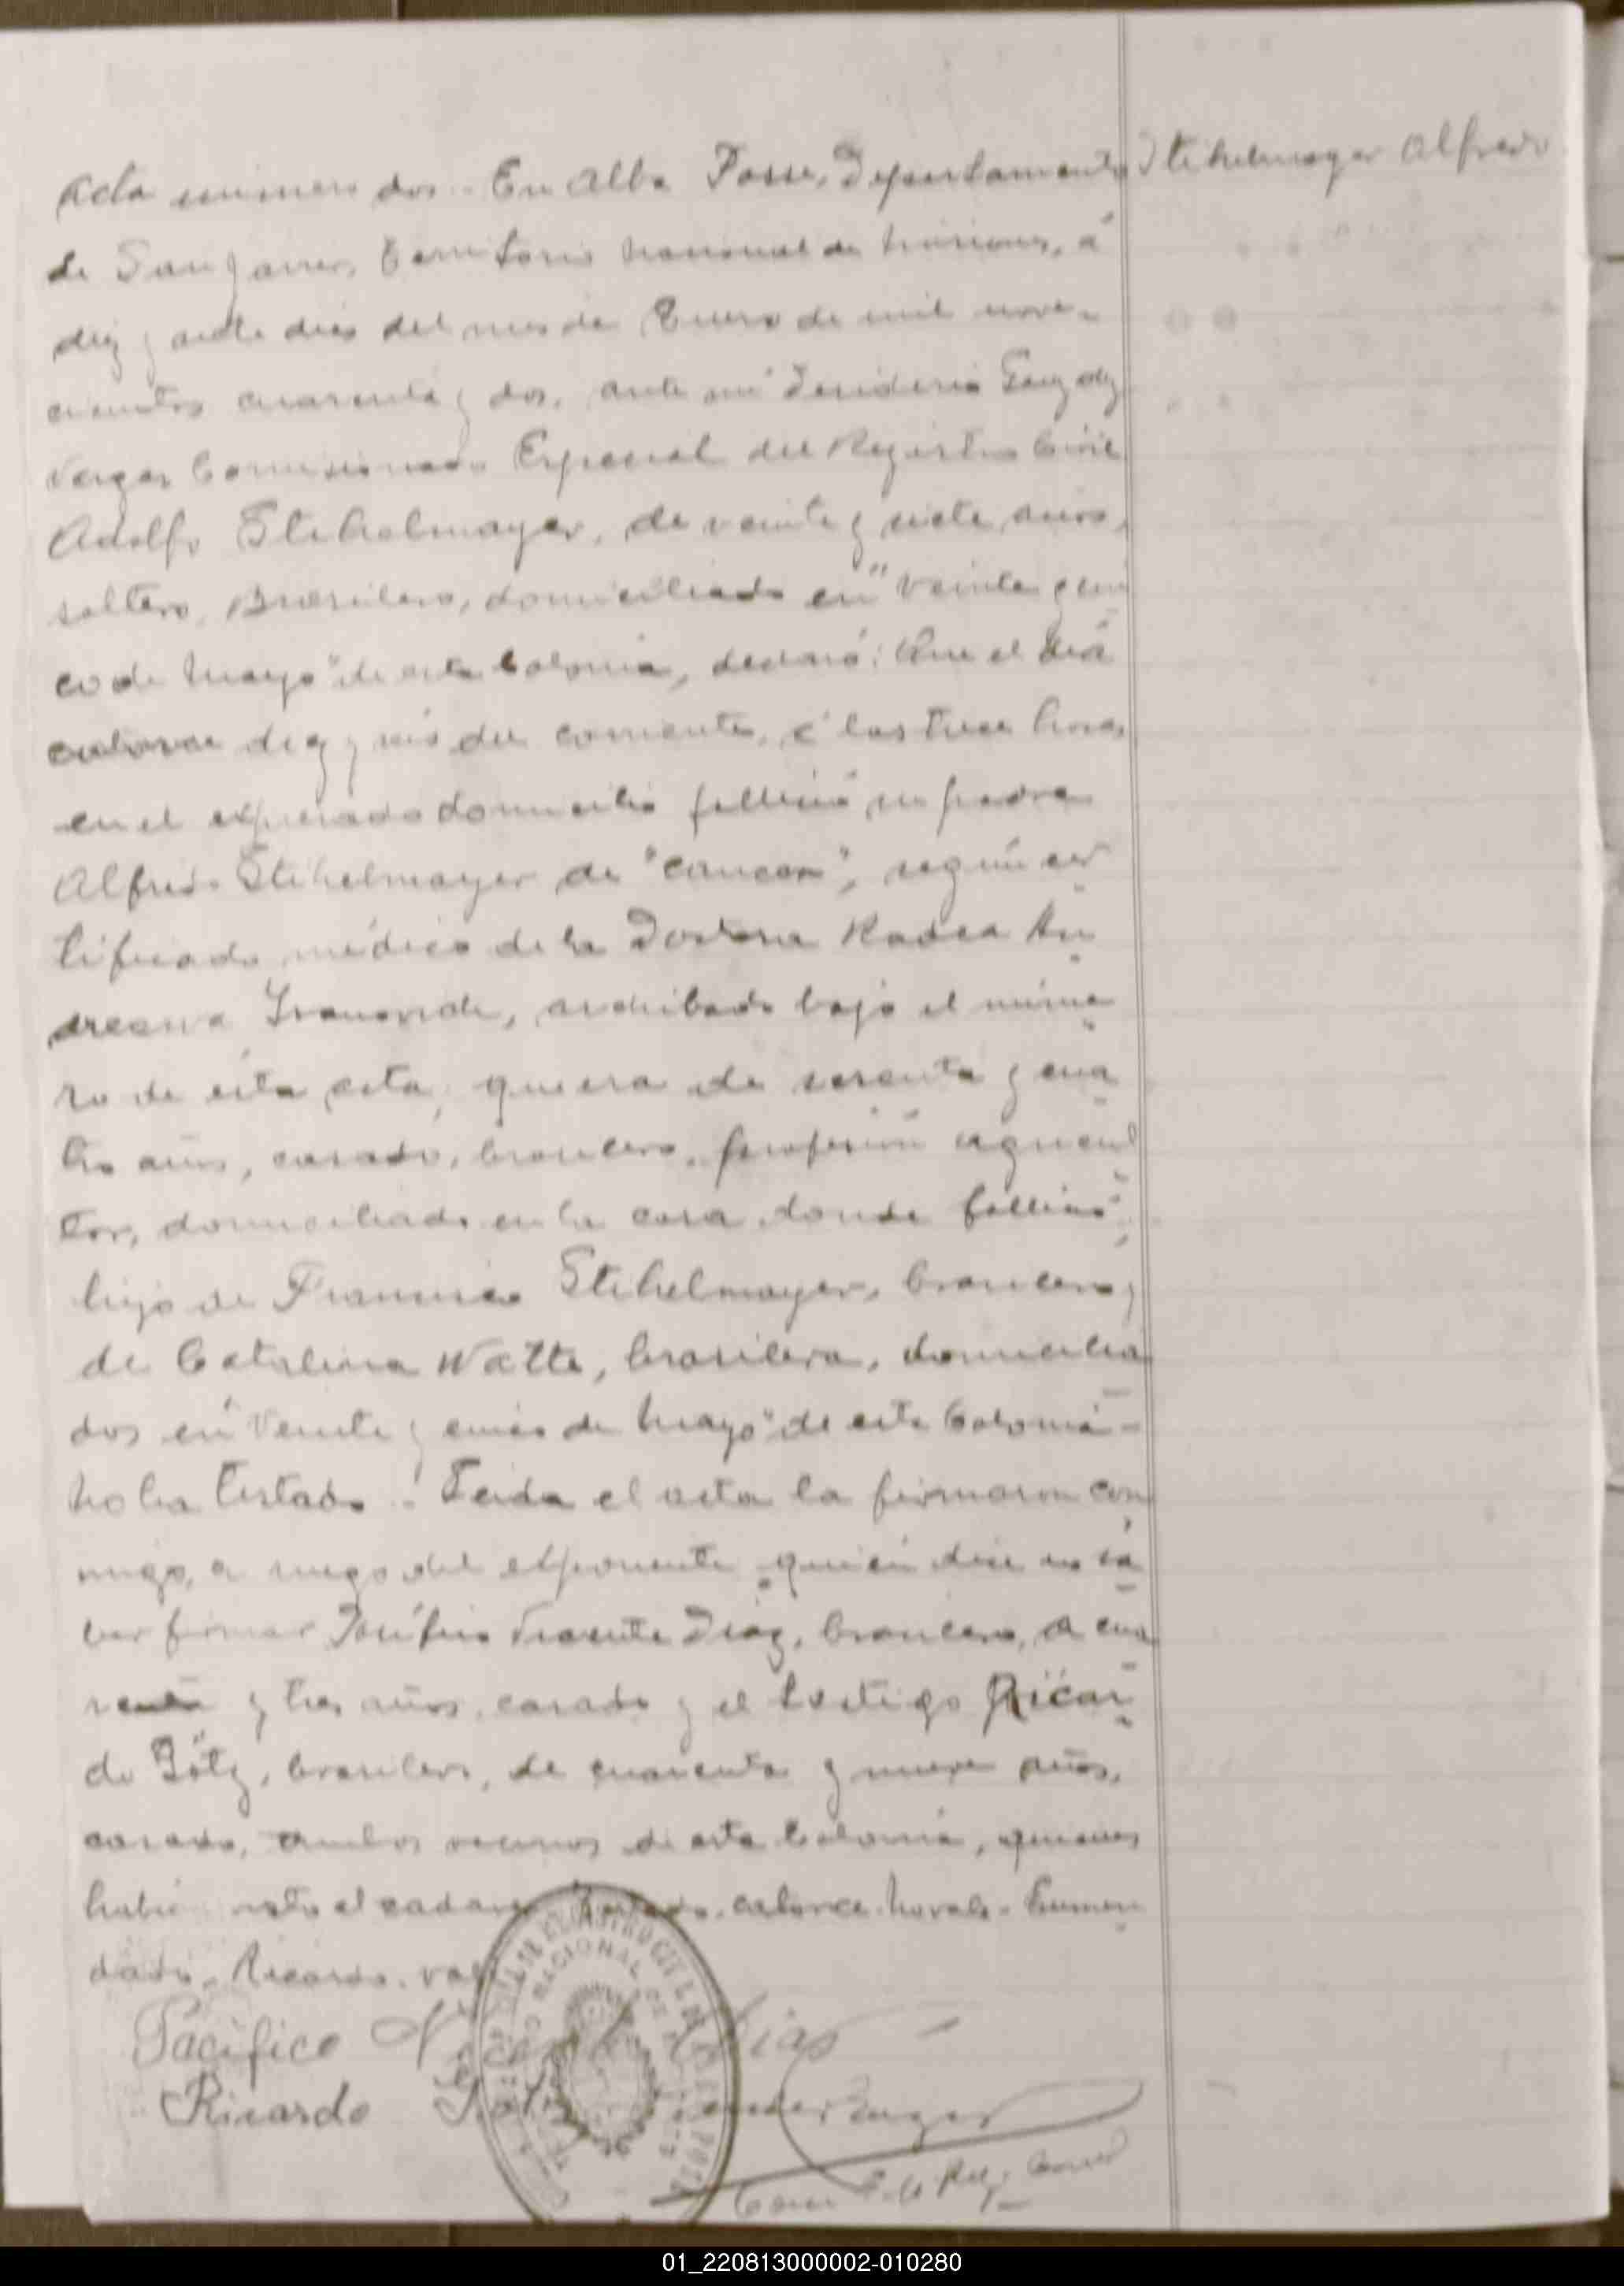 Acta número dos.- En Alba Posse, Departamento
Stihelmayer Alfredo
de San Javier, Territorio Nacional de Misiones, á
diez y siete dias del mes de Enero de mil nove-
cientos cuarenta y dos, ante mi Desiderio
Vargas Comisionado Especial del Registro Civil
Adolfo Stihelmayer, de veinte y siete años,
soltero, Brasilero, domiciliado en "Veinte y cin
co de Mayo" de esta Colonia, declaró: Que el dia
catorce diez y seis del corriente, á las trece horas
en el expresado domicilio falleció su padre
Alfredo Stihelmayer de "cancer", según cer
tificado médico de la Doctora
archibado bajo el núme
ro de esta acta, que era de sesenta y cua
tro años, casado, brasilero, profesión agricul
tor, domiciliado en la casa donde falleció,
hijo de Francisco Stihelmayer, brasilero y
de Catalina Watte, brasilera, domicilia
dos en "Veinte y cinco de Mayo" de esta Colonia -
No ha testado.- Leida el acta la firmaron con
migo, a ruego del exponente quién dice no sa
ber firmar Pacífico Vicente Diaz, brasilero, de cua
renta y tres años, casado y el testigo Ricar
do Götz, brasilero, de cuarenta y nueve años,
casado, ambos vecinos de esta Colonia, quienes
habia visto el cadaver. Testado. catorce. no vale.- Enmen
dado. Ricardo. vale
Pacífico Vicente Dias
Ricardo Götz